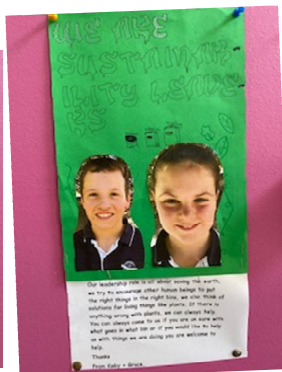 WE ARE
SUSTAINAB
ILITY LEADE
RS
Our leadership role is all about saving the earth,
we try to encourage other human beings to put
the right things in the right bins, we also think of
solutions for living things like plants. If there is
anything wrong with plants, we can always help.
You can always come to us if you are un sure with
what goes in what bin or if you would like to help
us with things we are doing you are welcome to
help.
Thanks
From Gaby + Grace.